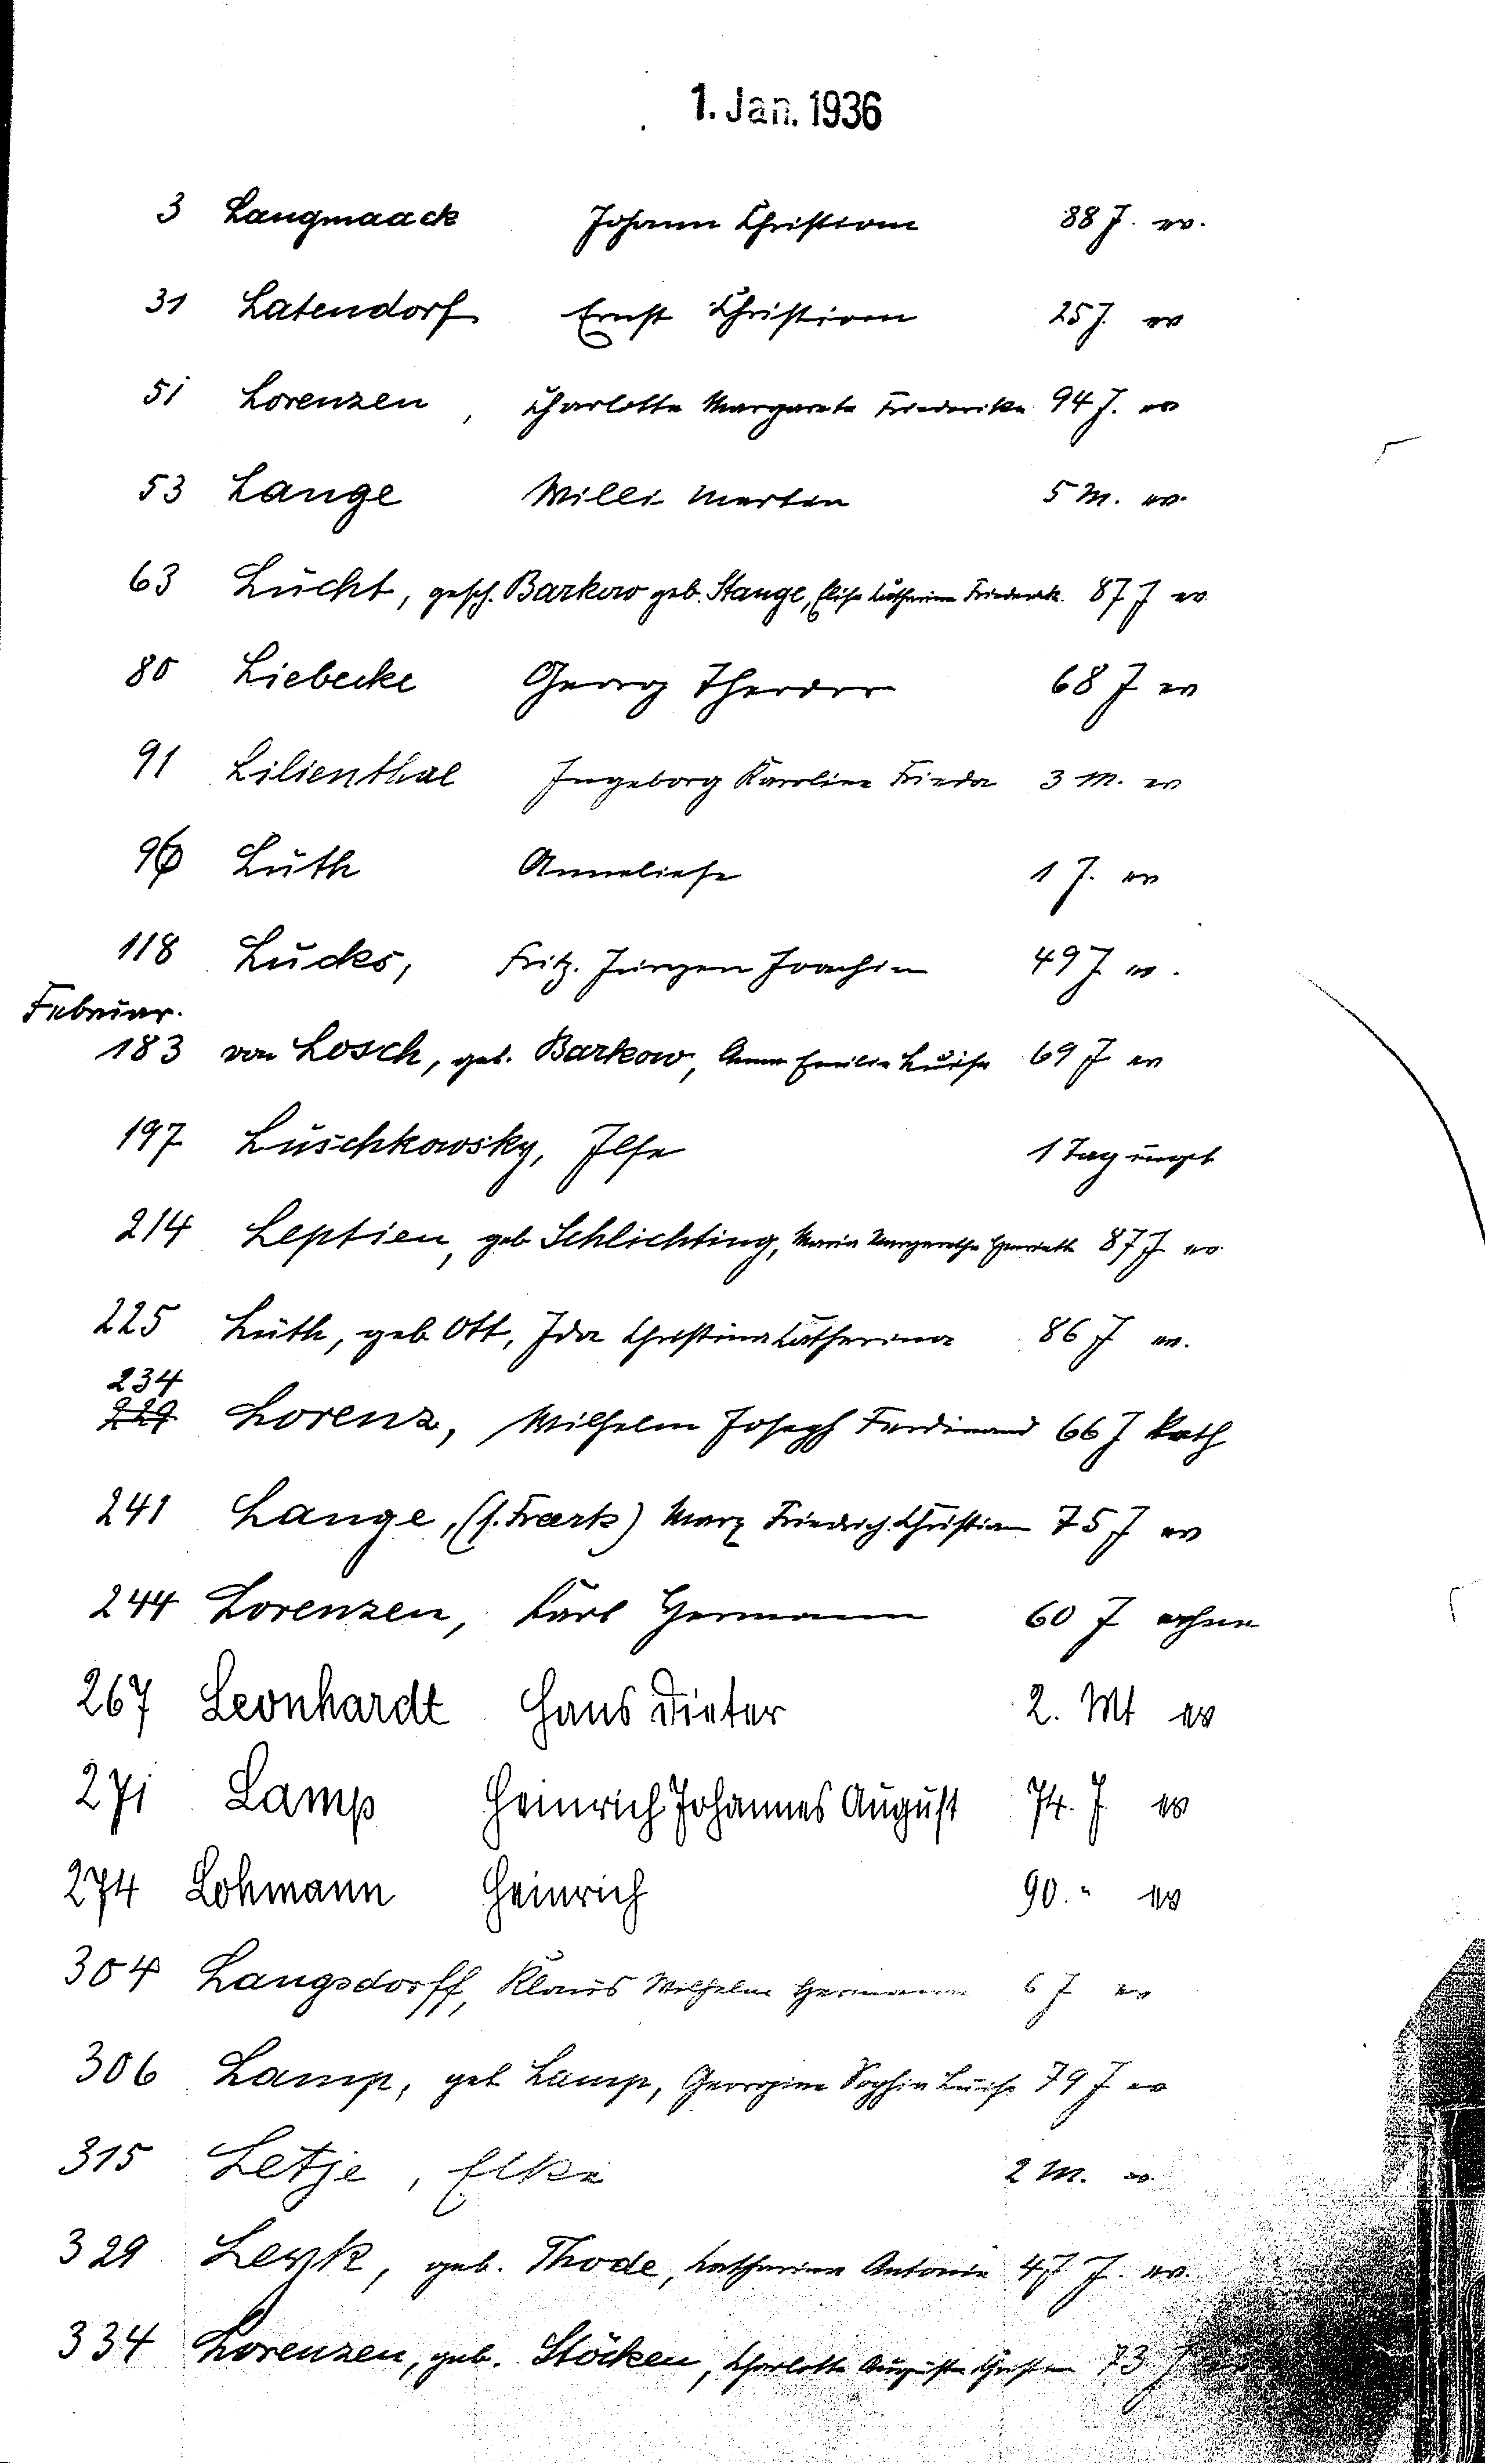 1. Jan. 1936
3 Langmaack Johann Christian 88 J. ev.
31 Latendorf Ernst Christian 25 J. ev
51 Lorenzen, Charlotte Margareta Friederike 94 J. ev
53 Lange Willi Martin 5 M. ev.
63 Lucht, gesch. Barkow geb. Stange, Elise Catharina Friederik. 87 J ev.
80 Liebecke Georg Theodor 68 J ev
91 Lilienthal Ingeborg Karoline Frieda 3 M. ev
96 Lüth Anneliese 1 J. ev
118 Lucks, Fritz Jürgen Joachim 49 J ev.
Februar.
183 von Losch, geb. Barkow, Anna Emilie Luise 69 J ev
197 Luschkowsky, Ilse 1 Tag unget
214 Leptien, geb Schlichting, Maria Margaretha Henriette 87 J ev.
225 Lüth, geb Ott, Ida Christina Catharina 86 J ev.
234
229 Lorenz, Wilhelm Joseph Ferdinand 66 J kath
241 Lange, (f. Frerk) Marx Friedrich Christian 75 J ev
244 Lorenzen, Karl Hermann 60 J ohne
267 Leonhardt Hans Dieter 2. Mt ev
271 Lamp Heinrich Johannes August 74. J ev
274 Lohmann Heinrich 90. " ev
304 Langsdorff, Klaus Wilhelm Hermann 6 J ev
306 Lamp, geb Lamp, Georgine Sophie Luise 79 J ev
315 Letje, Elke 2 M. ev.
329 Leyk, geb. Thode, Katharina Antonie 47 J. ev.
334 Lorenzen, geb. Stöcken, Charlotte Auguste Christine 73 J